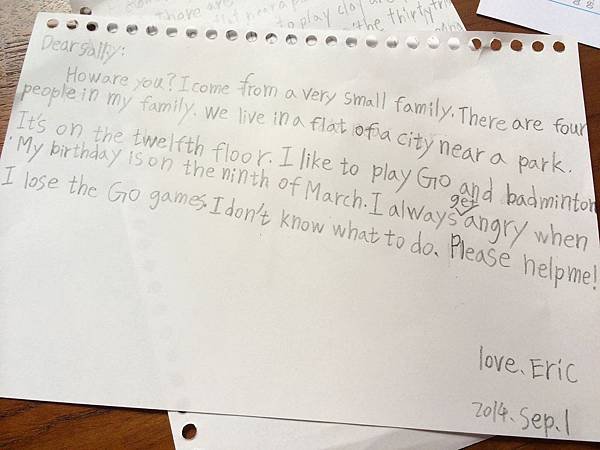 there are
flat near a
to play clay
the thirty
Dear Sally:
How are you? I come from a very small family. There are four
people in my family. We live in a flat of a city near a park.
It's on the twelfth floor. I like to play Go and badminton
. My birthday is on the ninth of March. I always get angry when
I lose the Go games. I don't know what to do. Please help me!
love. Eric
2014. Sep. 1